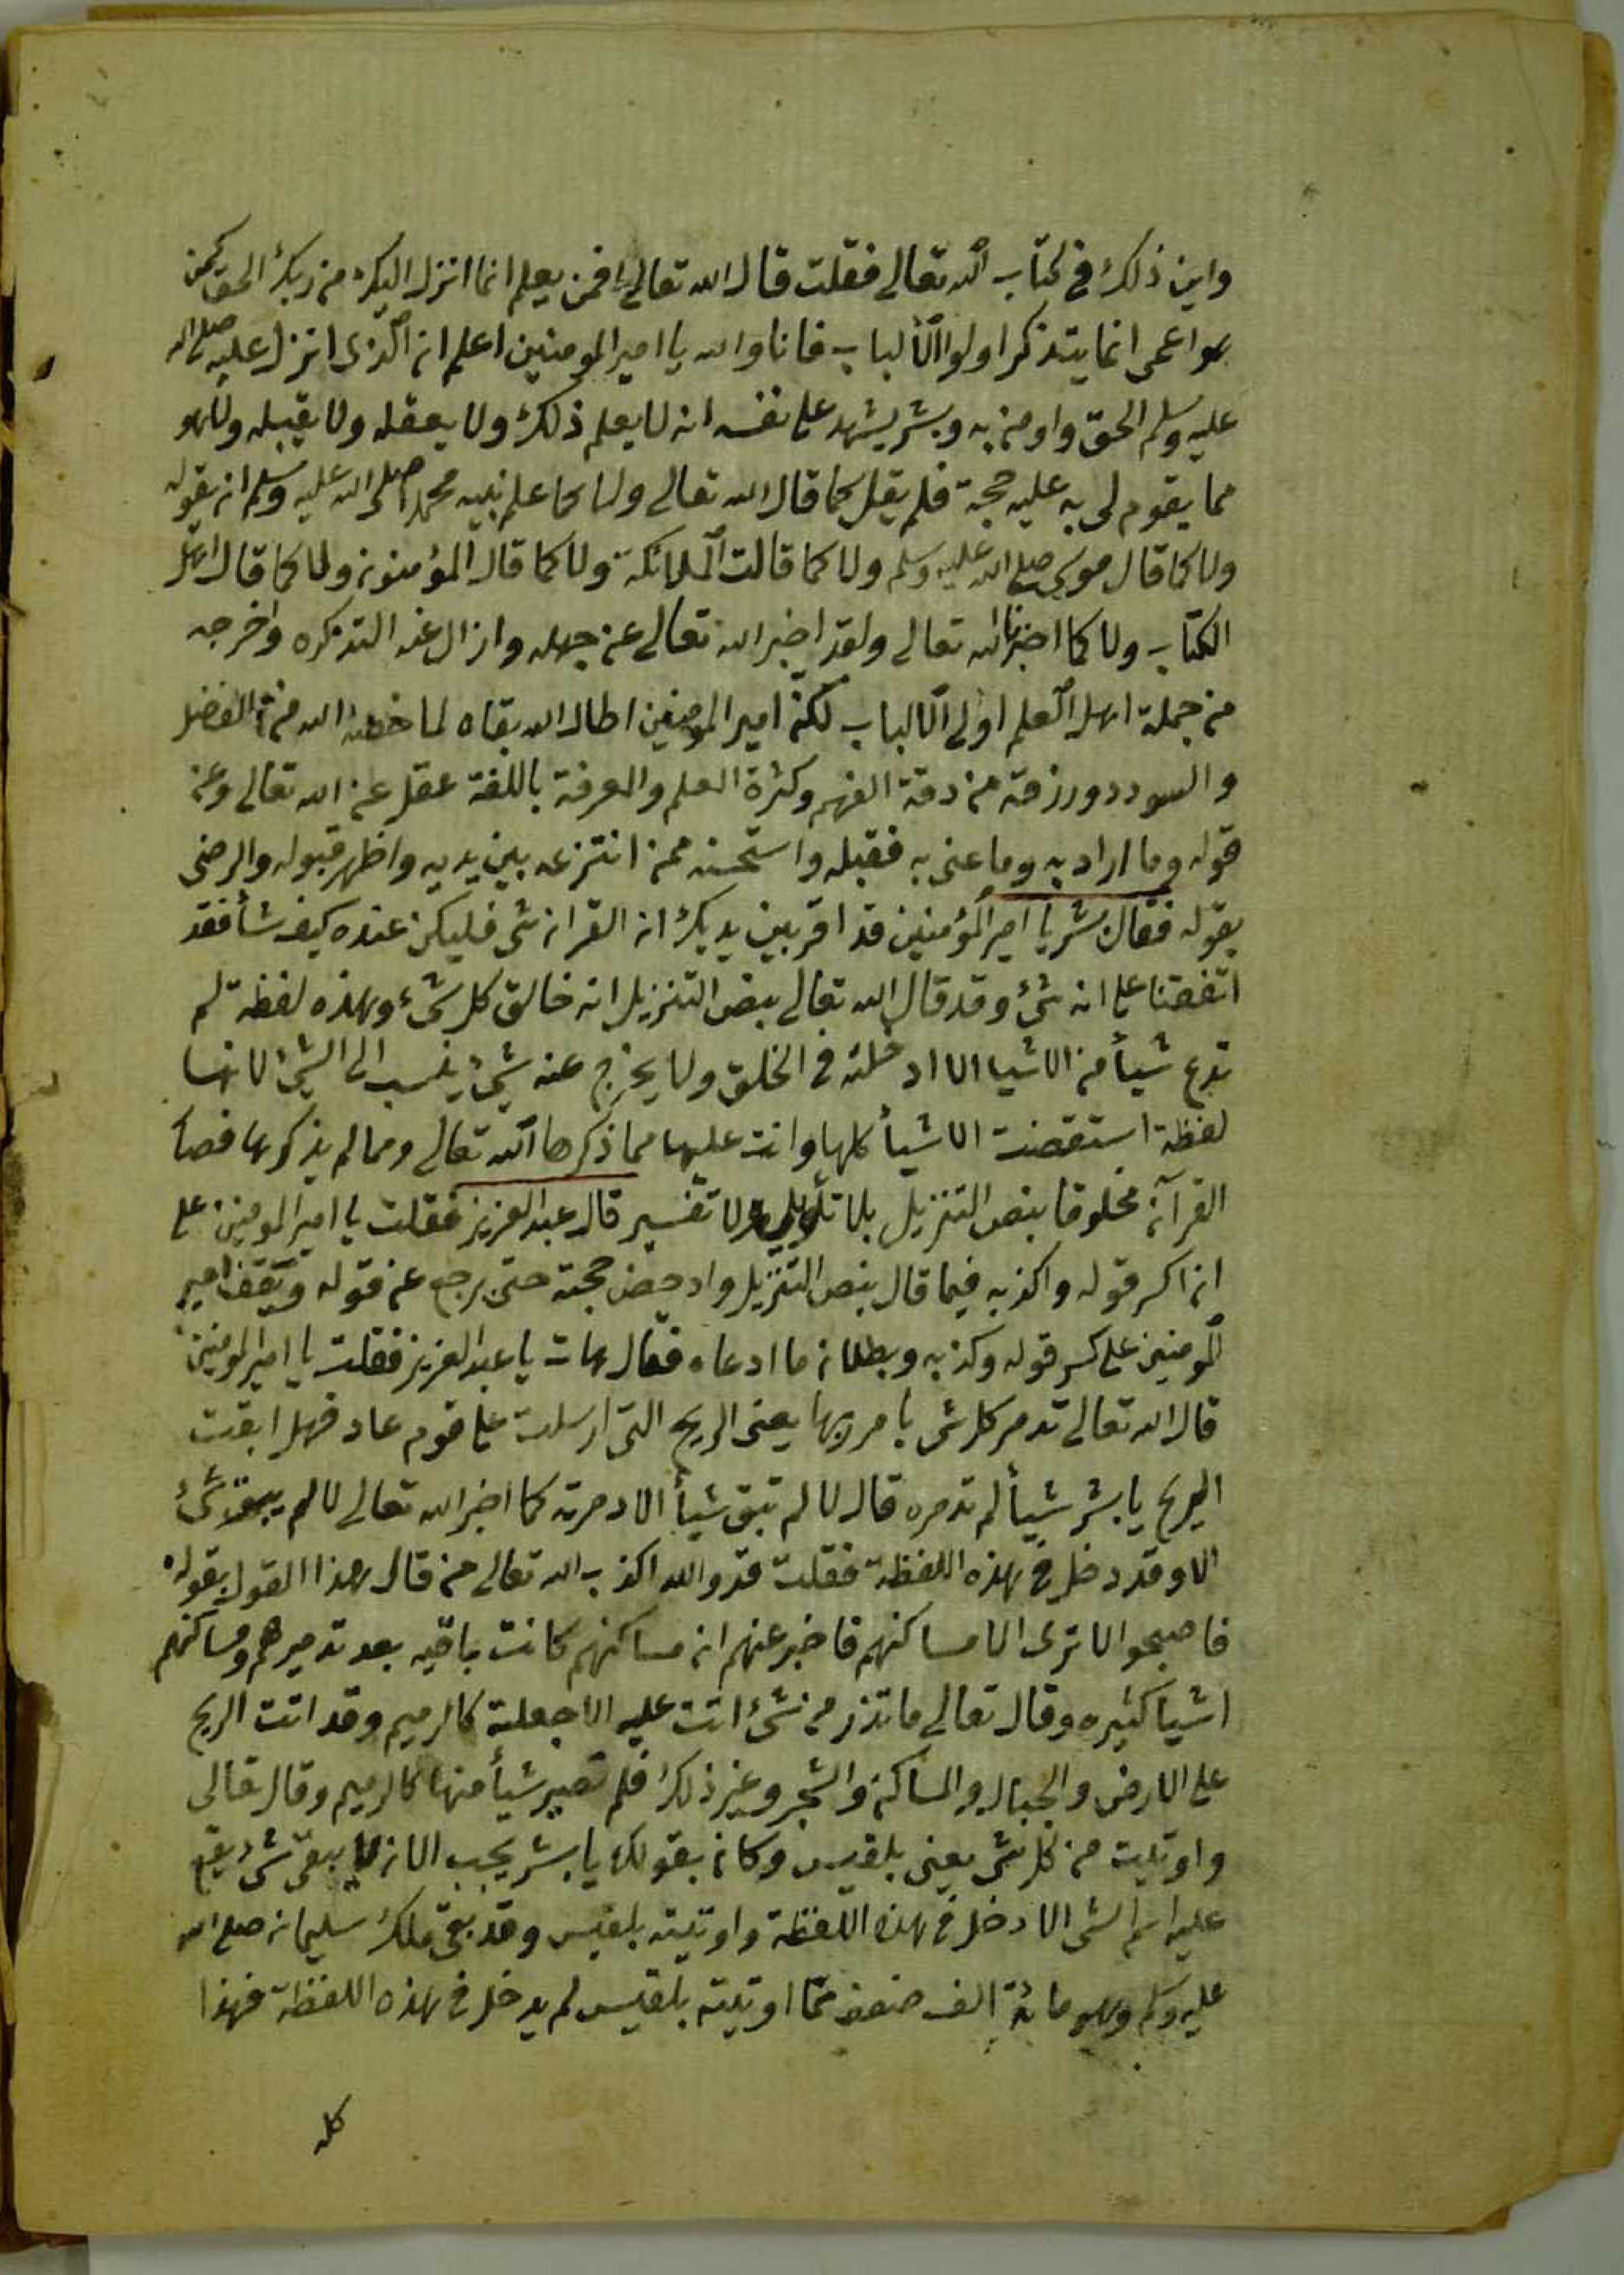 واين ذلك في كتاب الله تعالى فقلت قال الله تعالى افمن يعلم انما انزل اليك من ربك الحق كمن
هو اعمى انما يتذكر اولوا الألباب فانا والله يا امير المومنين اعلم ان الذى انزل عليه صلى الله
عليه وسلم الحق واومن به وبشر يشهد على نفسه انه لا يعلم ذلك ولا يعقله ولا يقبله ولا هو
مما يقوم لى به عليه حجة فلم يقل كما قال الله تعالى ولا كما علم نبيه محمد صلى الله عليه وسلم ان يقوله
ولا كما قال موسى صلى الله عليه وسلم ولا كما قالت الملائكة ولا كما قال المؤمنون ولا كما قال اهل
الكتاب ولا كما اخبرنا الله تعالى ولقد اخبر الله تعالى عن جهله وازال عنه التذكره واخرجه
من جملة اهل العلم اولى الالباب لكن امير المومنين اطال الله بقاه لما خصه الله من الفضل
والسودد ورزقه من دقة الفهم وكثرة العلم والمعرفة باللغة عقل عن الله تعالى وعن
قوله وما اراد به وما عنى به فقبله واستحسنه ممن انتزعه بين يديه واظهر قبوله والرضى
بقوله فقال بشر يا امير المؤمنين قد اقر بين يديك ان القران شى فليكن عنده كيف شأ فقد
اتفقنا على انه شئ وقد قال الله تعالى بنص التنزيل انه خالق كل شئ وهذه لفظة لم
تدع شيأ من الاشيا الا ادخلته في الخلق ولا يخرج عنه شئ ينسب الى الشئ لانها
لفظة استقصت الاشيأ كلها واتت عليها مما ذكرها الله تعالى ومما لم يذكرها فصا
القرآن مخلوقا بنص التنزيل بلا تأويل ولا تفسير قال عبد العزيز فقلت يا امير المومنين على
ان اكسر قوله واكذبه فيما قال بنص التنزيل وادحض حجته حتى يرجع عن قوله ويقف امير
المومنين على كسر قوله وكذبه وبطلان ما ادعاه فقال هات يا عبد العزيز فقلت يا امير المومنين
قال الله تعالى تدمر كل شى بامر ربها يعنى الريح التى ارسلت على قوم عاد فهل ابقت
الريح يا بشر شيأ لم تدمره قال لا لم تبق شيأ الا دمرته كما اخبر الله تعالى لا لم يبق شئ
الا وقد دخل في هذه اللفظة فقلت قد والله اكذب الله تعالى من قال هذا القول بقوله
فاصبحوا لا ترى الا مساكنهم فاخبر عنهم ان مساكنهم كانت باقيه بعد تدميرهم ومساكنهم
اشيأ كثيره وقال تعالى ما تذر من شئ اتت عليه الا جعلته كالرميم وقد اتت الريح
على الارض والجبال والمساكن والشجر وغير ذلك فلم تصير شيأ منها كالرميم وقال تعالى
واوتيت من كل شى يعنى بلقيس وكان بقولك يا بشر يجب الا ان لا يبقى شئ يقع
عليه اسم الشى الا دخل في هذه اللفظة واوتيته بلقيس وقد بقى ملك سليمان صلى الله
عليه وسلم وهو مائة الف ضعف مما اوتيته بلقيس لم يدخل في هذه اللفظة فهذا
كله